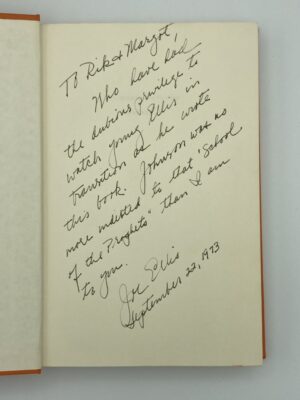 To Rik & Margot,
Who have had
the dubious privilege to
watch young Ellis in
transition as he wrote
this book. Johnson was no
more indebted to that "School
of the Prophets" than I am
to you.
Joe Ellis
September 22, 1973